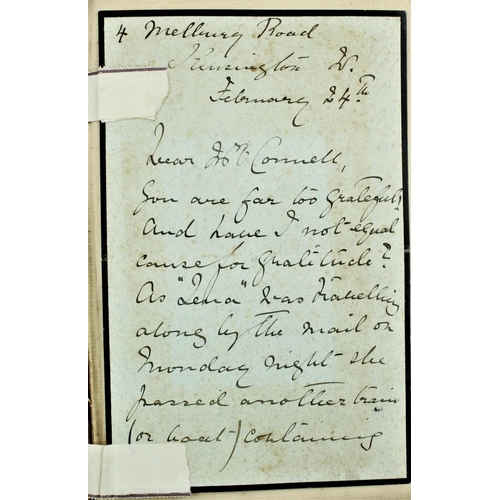 4 Melbury Road
Kensington W.
February 24th
Dear Connell,
You are far too grateful,
And have I not equal
cause for gratitude?
As "Lena" was travelling
along by the mail on
Monday night she
passed another train
(or boat) containing